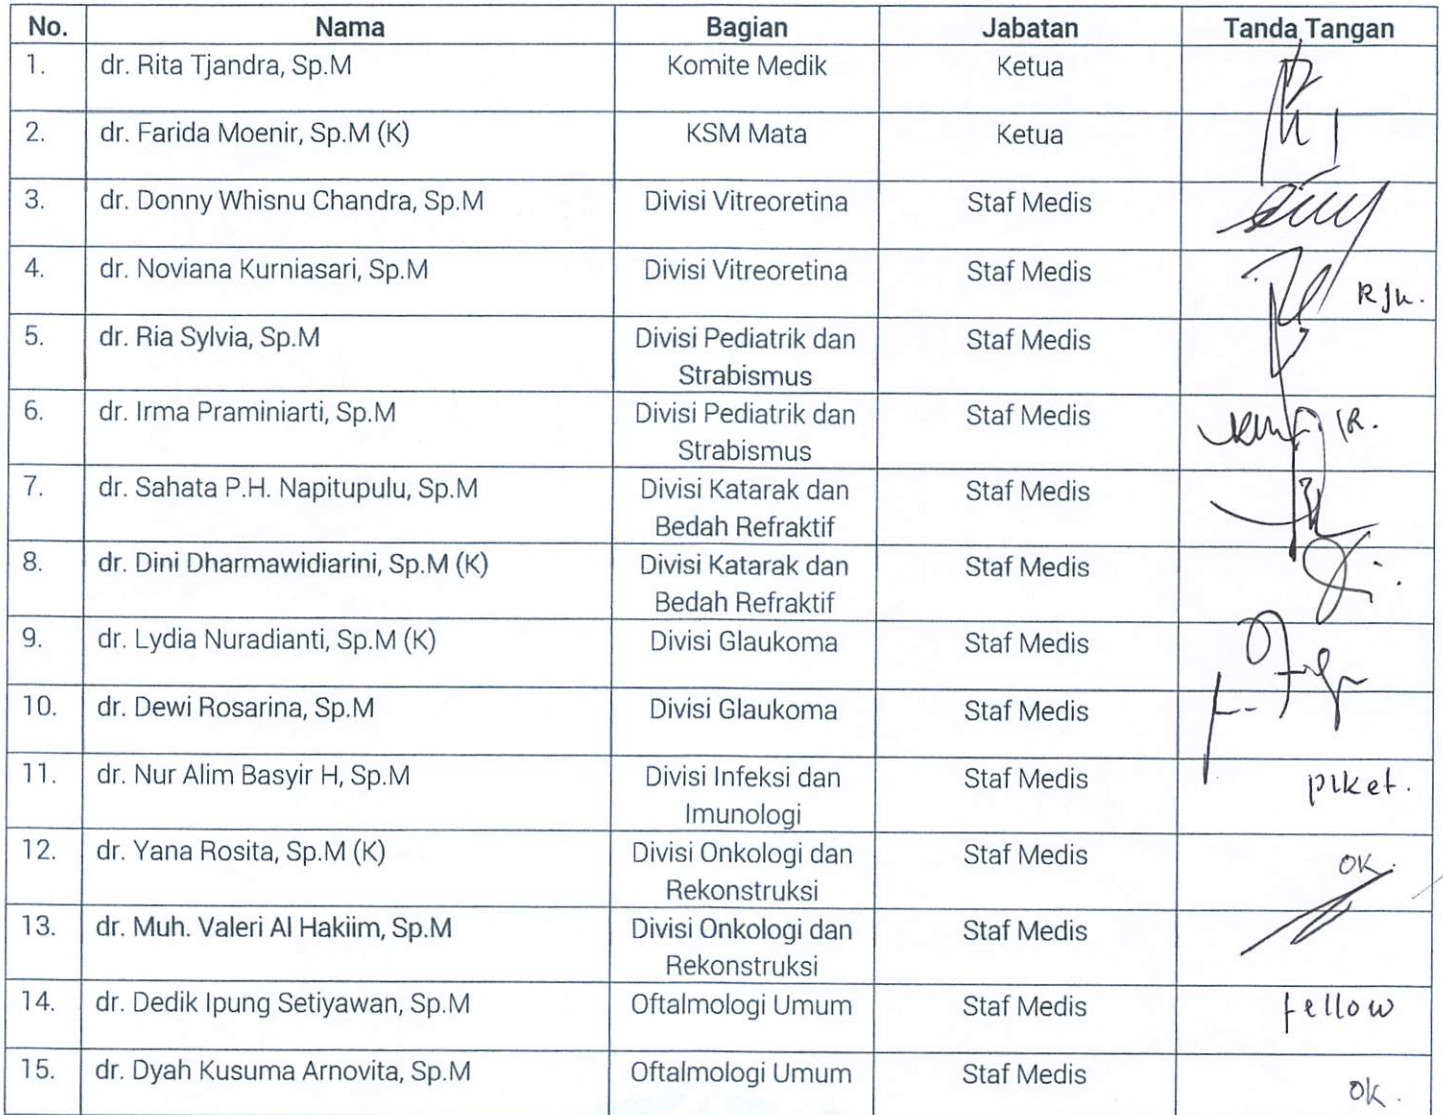 No. Nama Bagian Jabatan Tanda Tangan
1. dr. Rita Tjandra, Sp.M Komite Medik Ketua
2. dr. Farida Moenir, Sp.M (K) KSM Mata Ketua
3. dr. Donny Whisnu Chandra, Sp.M Divisi Vitreoretina Staf Medis
4. dr. Noviana Kurniasari, Sp.M Divisi Vitreoretina Staf Medis
5. dr. Ria Sylvia, Sp.M Divisi Pediatrik dan Staf Medis
Strabismus
6. dr. Irma Praminiarti, Sp.M Divisi Pediatrik dan Staf Medis
Strabismus
7. dr. Sahata P.H. Napitupulu, Sp.M Divisi Katarak dan Staf Medis
Bedah Refraktif
8. dr. Dini Dharmawidiarini, Sp.M (K) Divisi Katarak dan Staf Medis
Bedah Refraktif
9. dr. Lydia Nuradianti, Sp.M (K) Divisi Glaukoma Staf Medis
10. dr. Dewi Rosarina, Sp.M Divisi Glaukoma Staf Medis
11. dr. Nur Alim Basyir H, Sp.M Divisi Infeksi dan Staf Medis piket.
Imunologi
12. dr. Yana Rosita, Sp.M (K) Divisi Onkologi dan Staf Medis OK.
Rekonstruksi
13. dr. Muh. Valeri Al Hakiim, Sp.M Divisi Onkologi dan Staf Medis
Rekonstruksi
14. dr. Dedik Ipung Setiyawan, Sp.M Oftalmologi Umum Staf Medis fellow
15. dr. Dyah Kusuma Arnovita, Sp.M Oftalmologi Umum Staf Medis Ok.